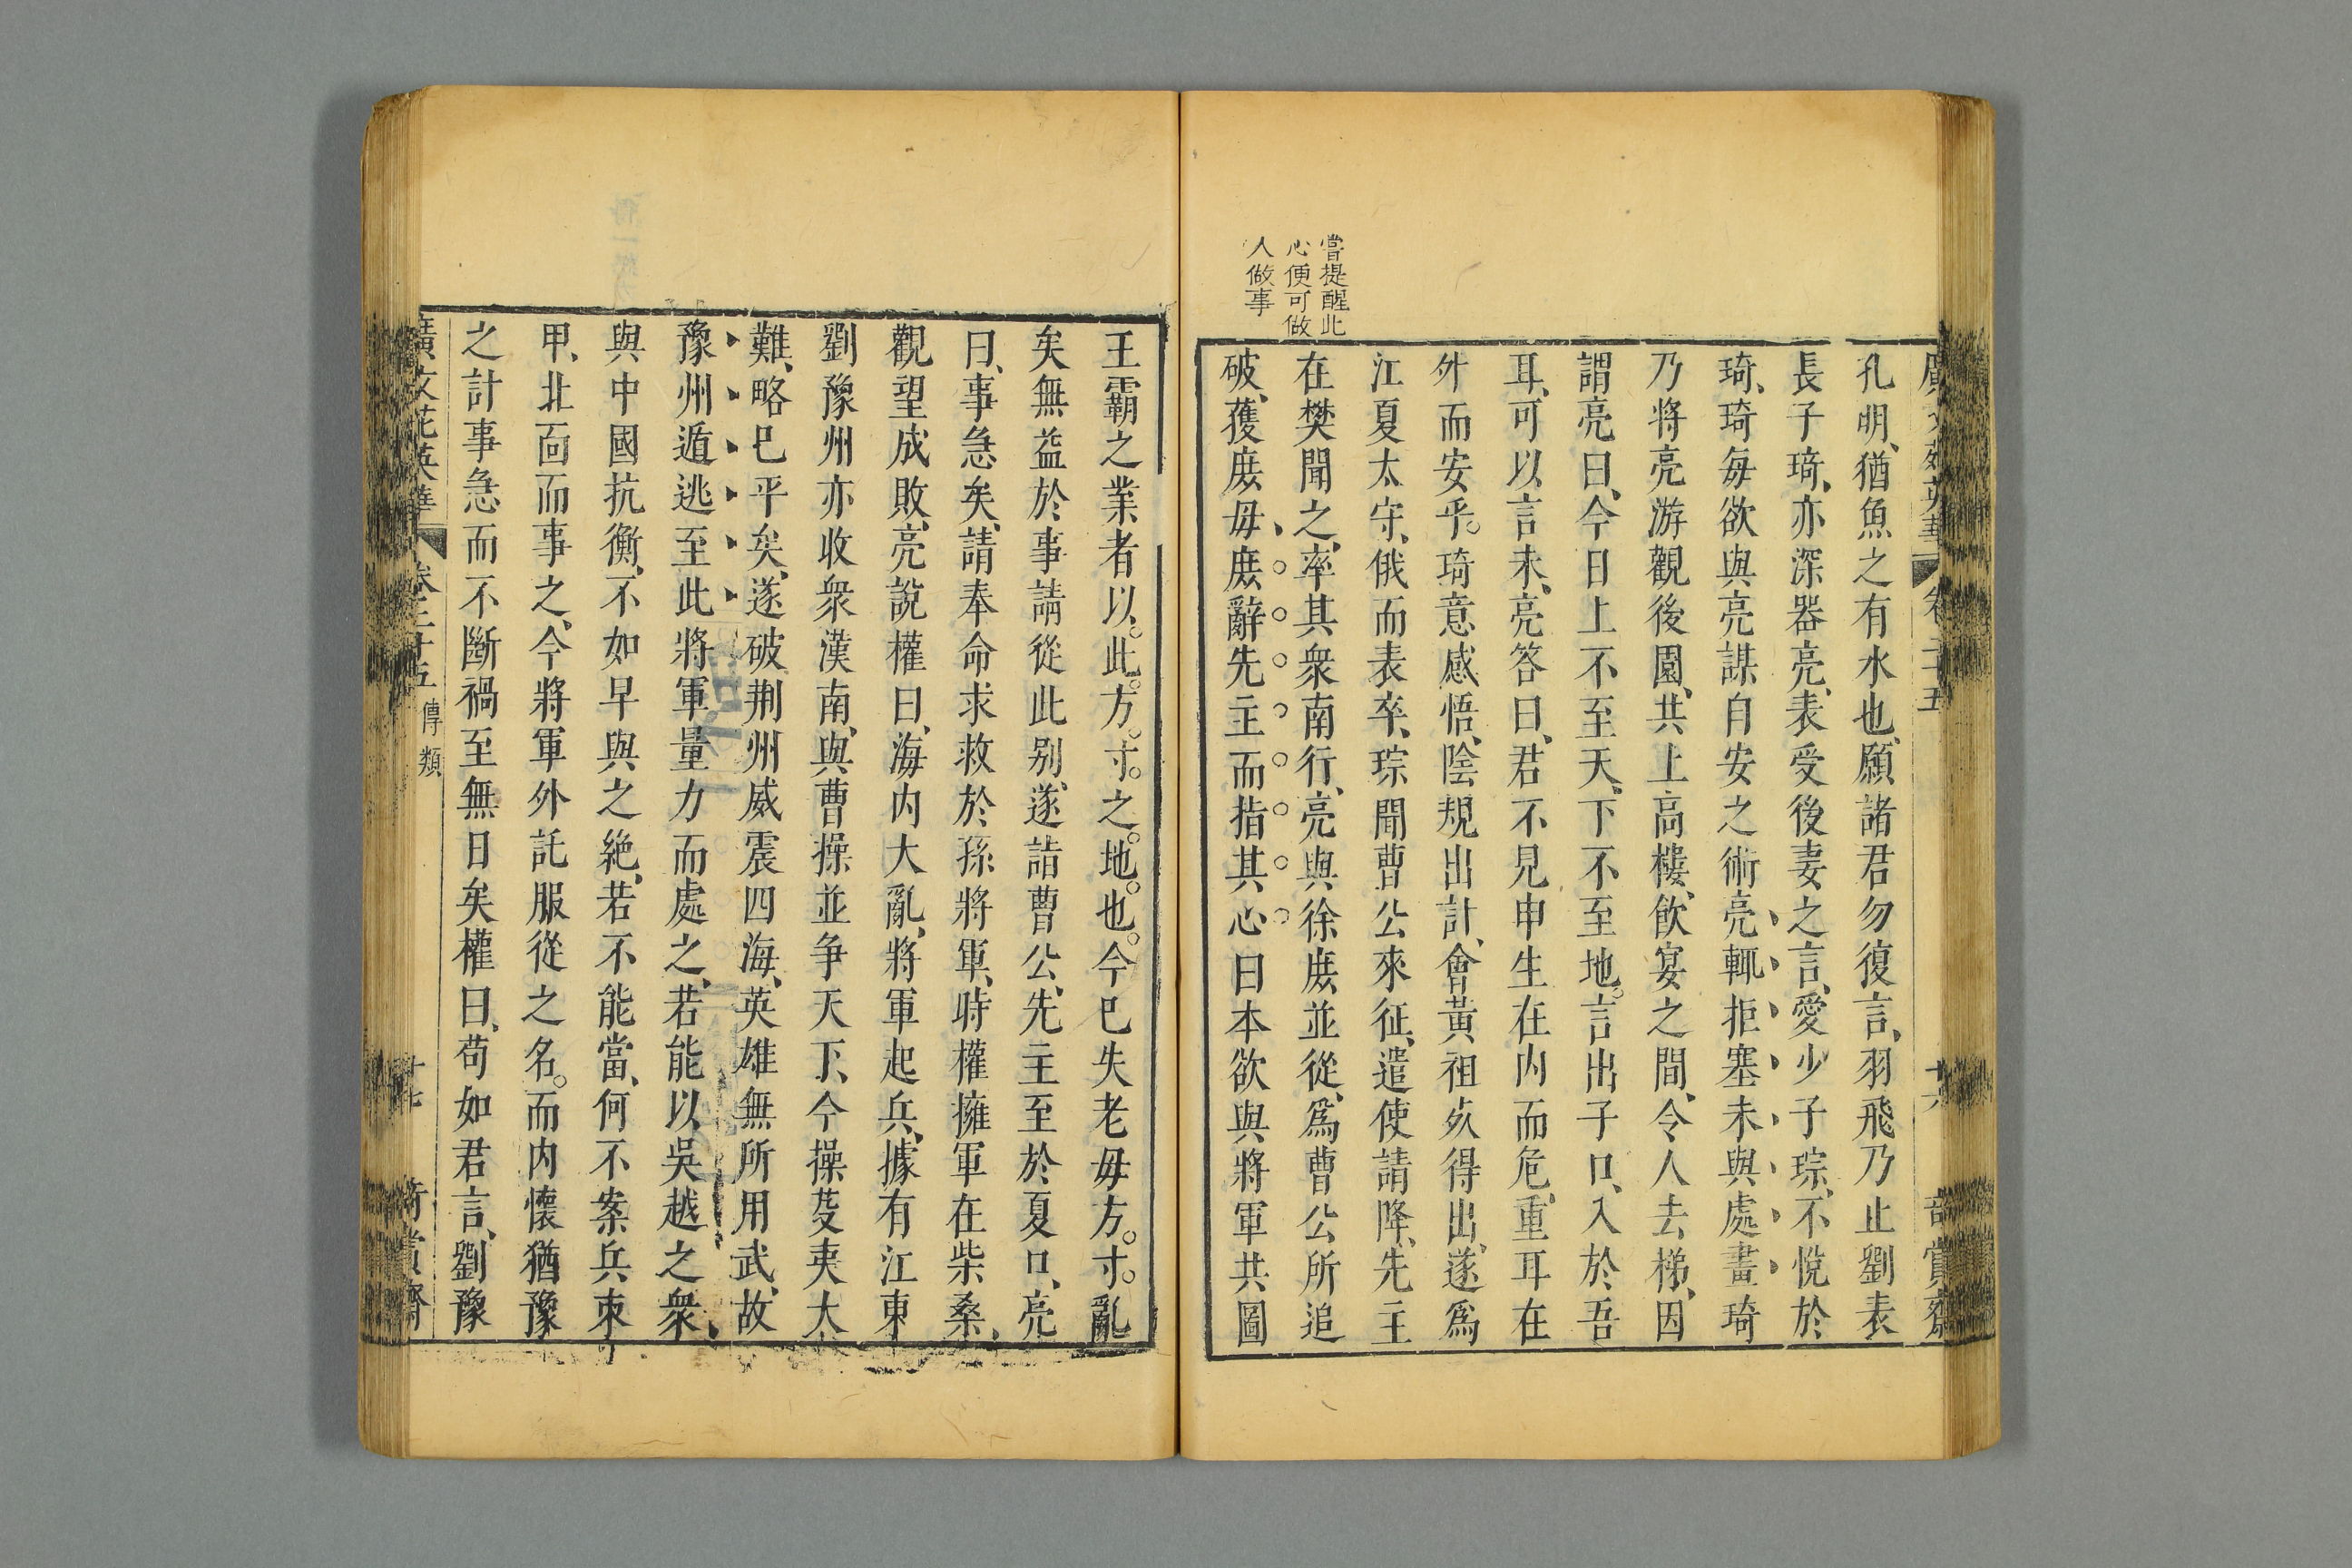 嘗提醒此
心便可做
人做事
孔明、猶魚之有水也、願諸君勿復言、羽飛乃止劉表
長子琦、亦深器亮、表受後妻之言、愛少子琮、不悅於
琦、琦每欲與亮謀自安之術、亮輒拒塞未與處畫琦
乃將亮游觀後園、共上高樓、飲宴之間、令人去梯、因
謂亮曰、今日上不至天、下不至地。言出子口、入於吾
耳、可以言未、亮答曰、君不見申生在内而危、重耳在
外而安乎。琦意感悟、陰規出計、會黃祖死得出、遂爲
江夏太守、俄而表卒、琮聞曹公來征、遣使請降、先主
在樊聞之、率其衆南行、亮與徐庶並從、爲曹公所追
破、獲庶母、庶辭先主而指其心曰本欲與將軍共圖
王霸之業者以。此。方。寸。之。地。也。今已失老母方。寸。亂
矣無益於事請從此别、遂詣曹公、先主至於夏口、亮
曰、事急矣、請奉命求救於孫將軍、時權擁軍在柴桑、
觀望成敗、亮說權曰、海内大亂、將軍起兵、據有江東
劉豫州亦收衆漢南、與曹操並爭天下、今操芟夷大
難、略已平矣、遂破荆州威震四海、英雄無所用武、故
豫州遁逃至此將軍量力而處之、若能以吳越之衆、
與中國抗衡、不如早與之絶、若不能當、何不案兵束
甲、北面而事之、今將軍外託服從之名。而内懷猶豫
之計事急而不斷禍至無日矣權曰、苟如君言、劉豫
廣文苑英華 卷二十五 傳類 十七 奇賞齋